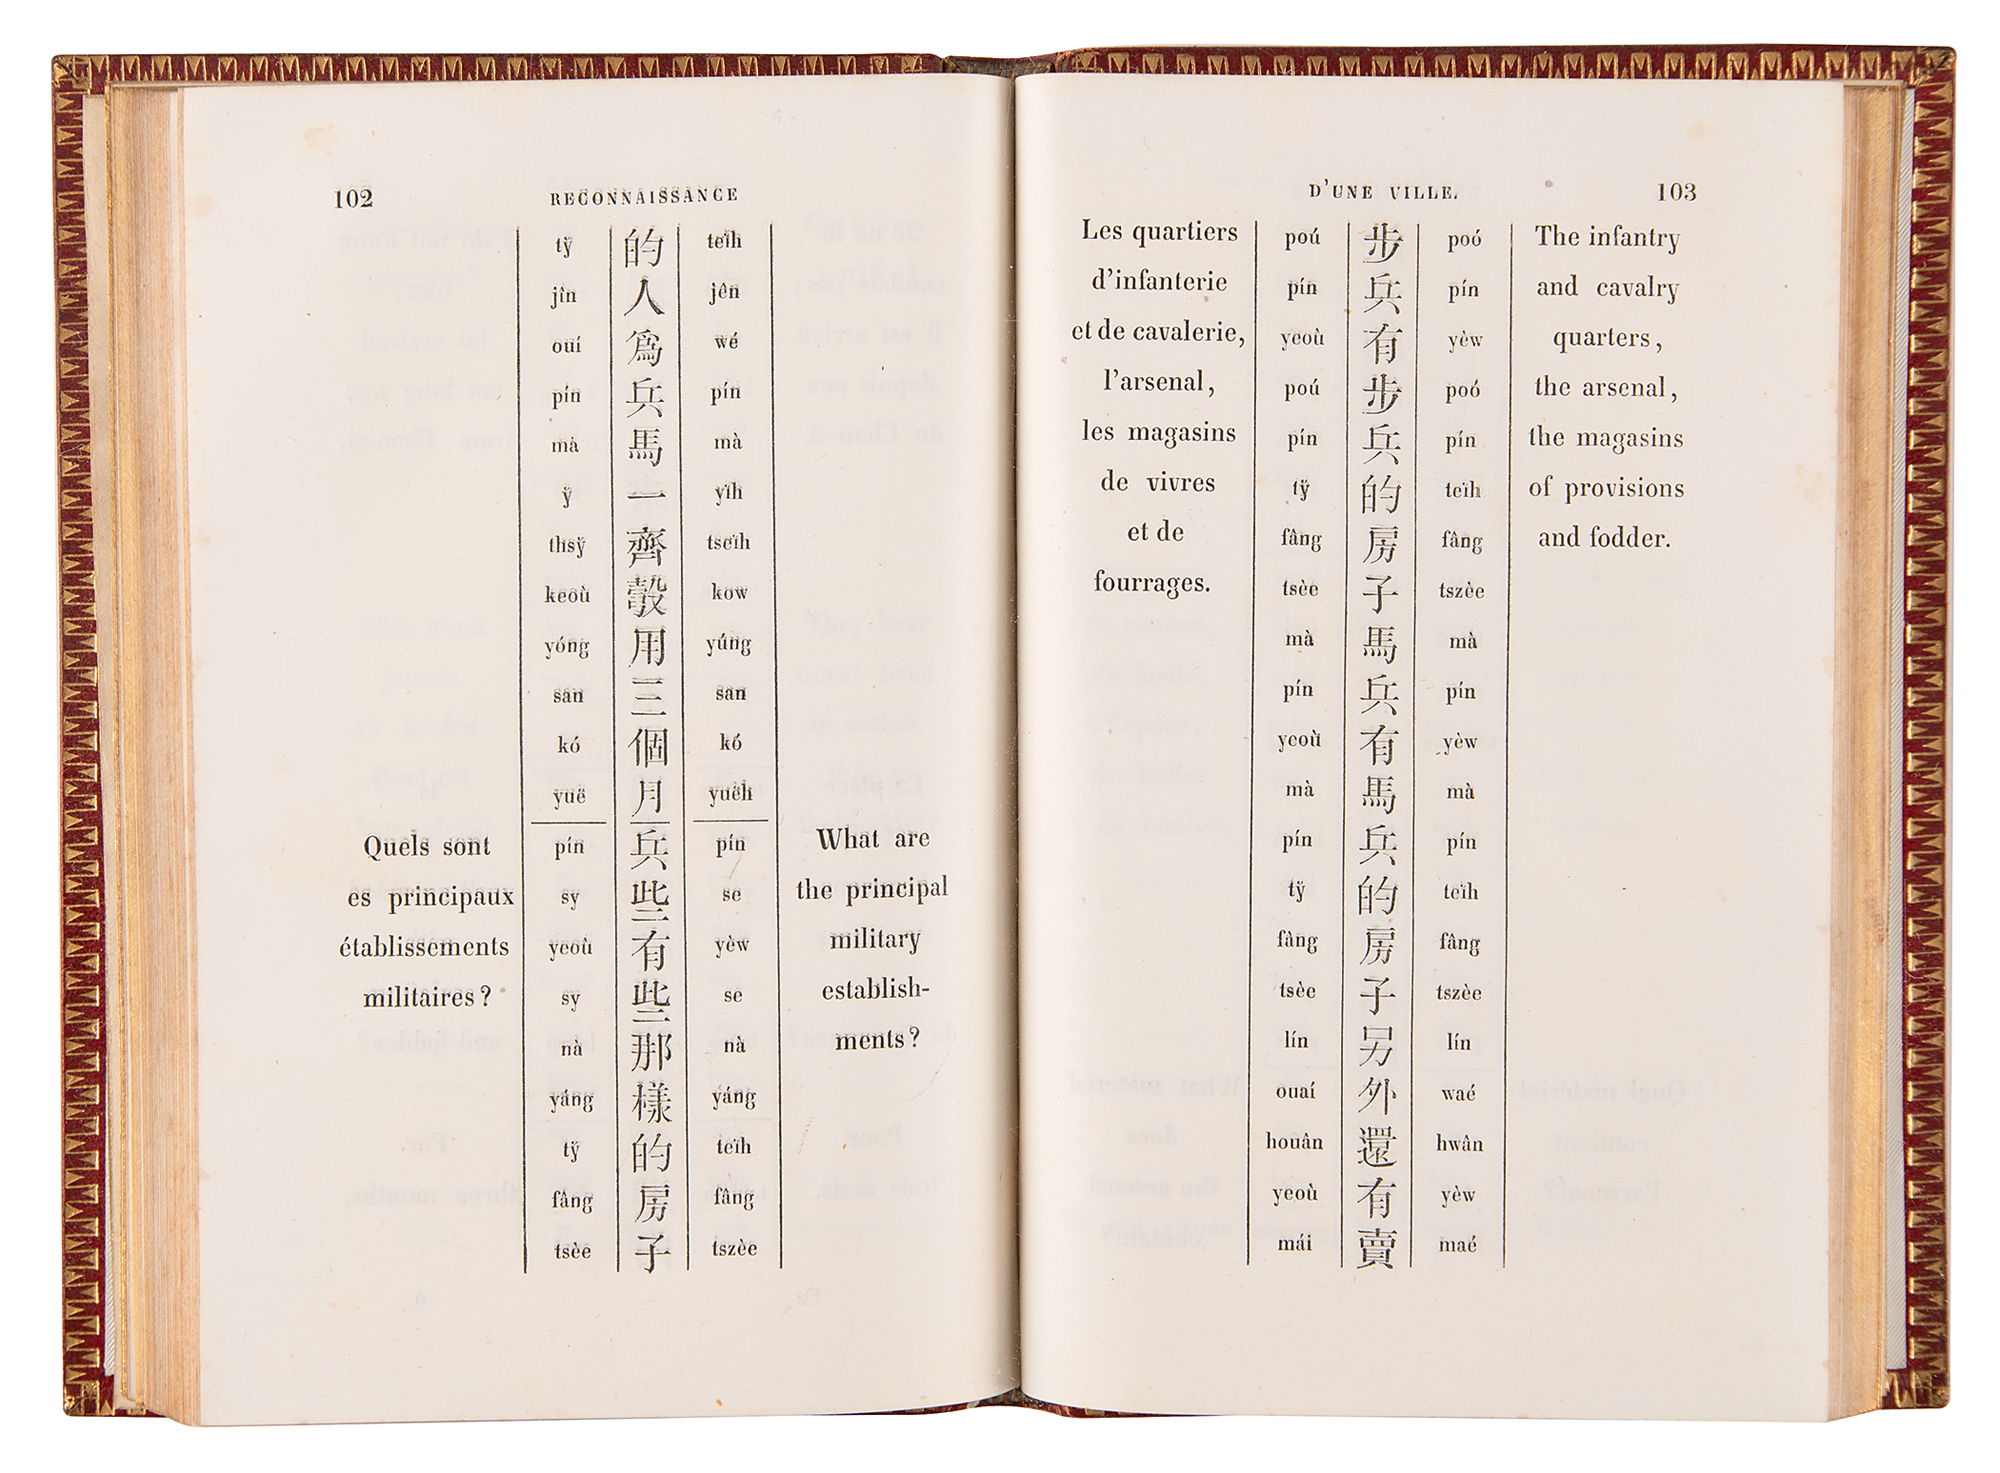 102 RECONNAISSANCE
tў 的 teïh
jîn 人 jên
ouí 爲 wé
pín 兵 pín
mà 馬 mà
ÿ 一 yïh
thsÿ 齊 tseïh
keoù 彀 kow
yóng 用 yúng
san 三 san
kó 個 kó
yuë 月 yuëh
Quels sont pín 兵 pín What are
es principaux sy 些 se the principal
établissements yeoù 有 yèw military
militaires? sy 些 se establish-
nà 那 nà ments?
yáng 樣 yáng
tÿ 的 teïh
fâng 房 fâng
tsèe 子 tszèe
D'UNE VILLE. 103
Les quartiers poú 步 poó The infantry
d'infanterie pín 兵 pín and cavalry
et de cavalerie, yeoù 有 yèw quarters,
l'arsenal, poú 步 poó the arsenal,
les magasins pín 兵 pín the magasins
de vivres tÿ 的 teïh of provisions
et de fâng 房 fâng and fodder.
fourrages. tsèe 子 tszèe
mà 馬 mà
pín 兵 pín
yeoù 有 yèw
mà 馬 mà
pín 兵 pín
tÿ 的 teïh
fâng 房 fâng
tsèe 子 tszèe
lín 另 lín
ouaí 外 waé
houân 還 hwân
yeoù 有 yèw
mái 賣 maé